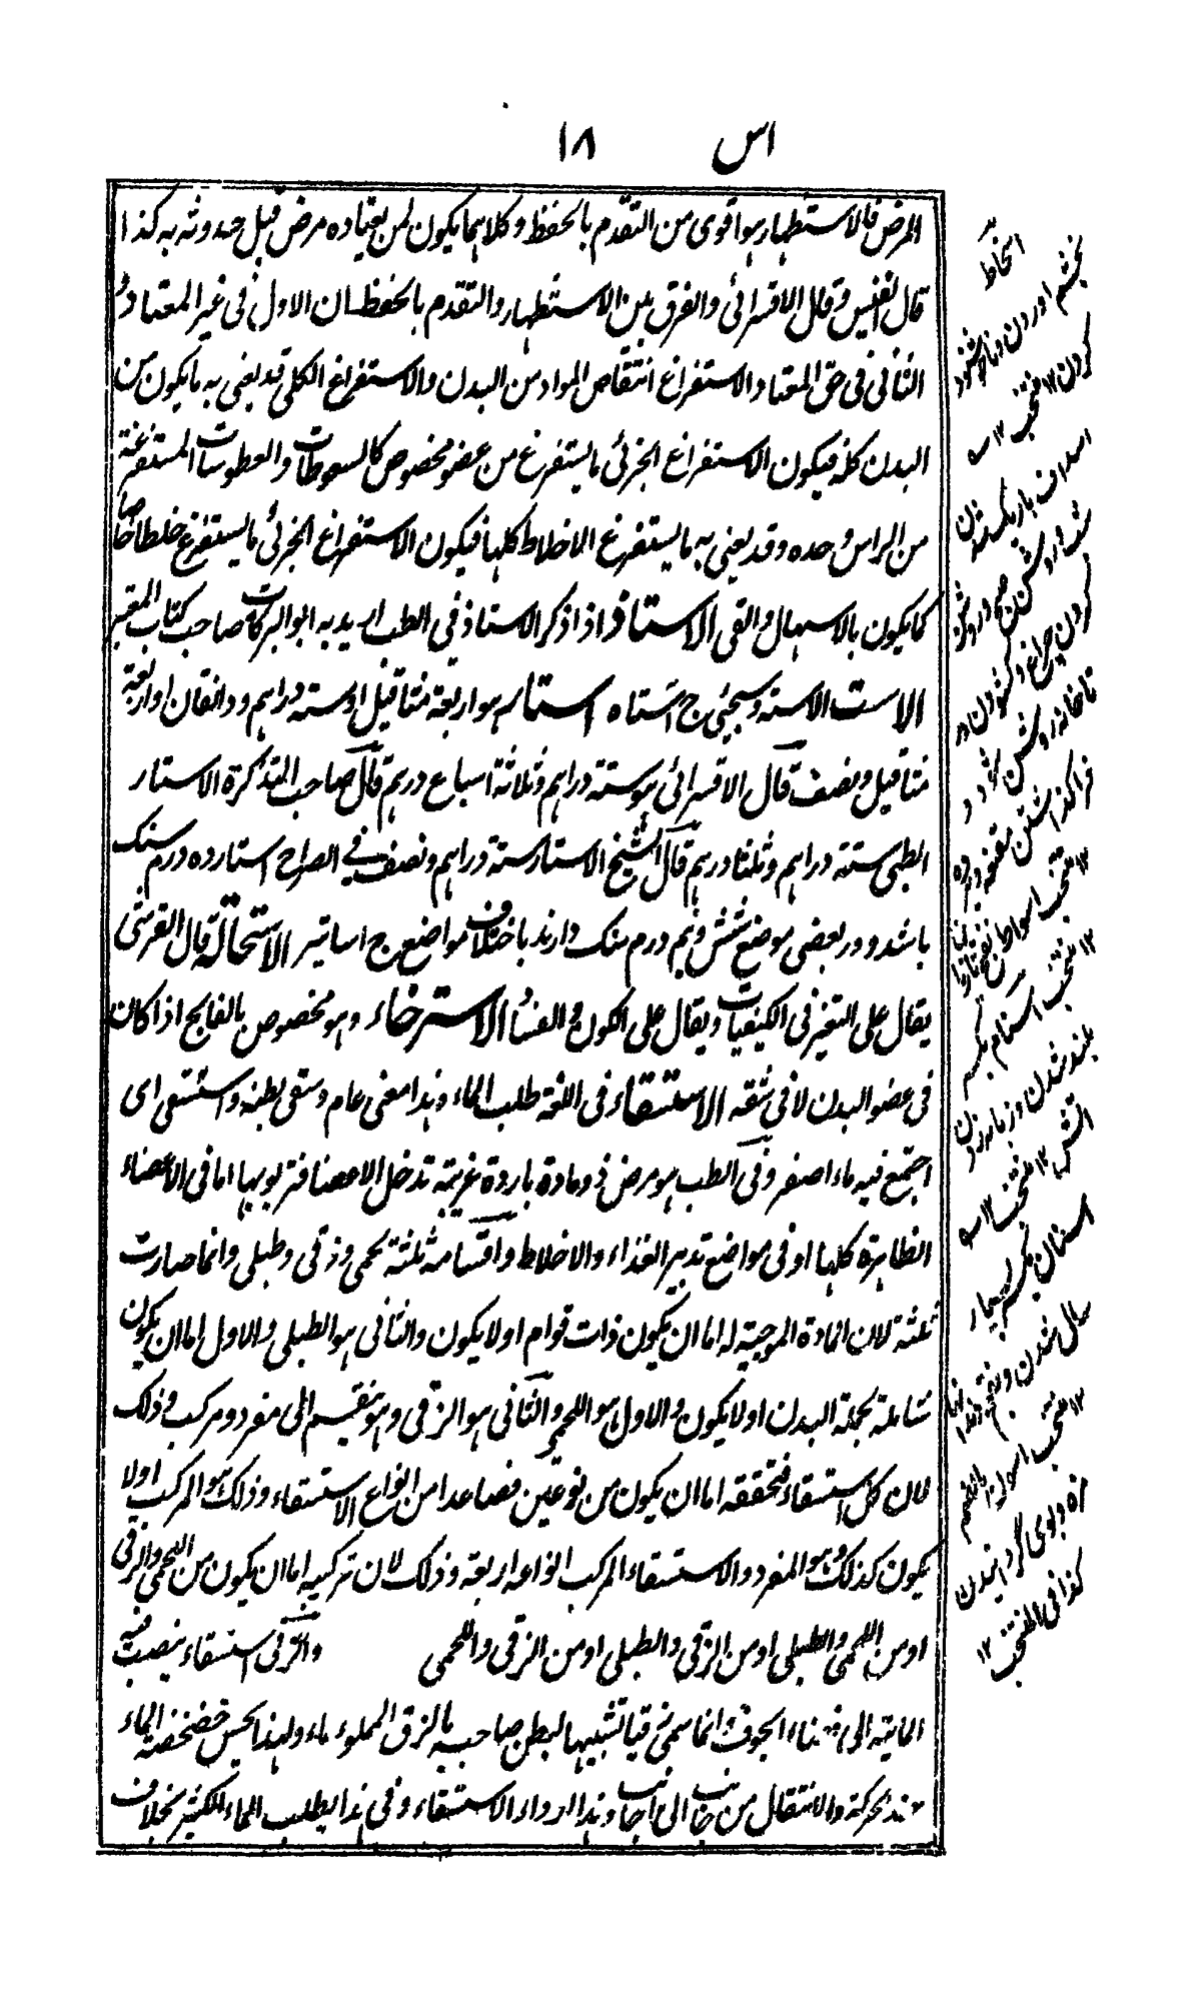 اس ١٨
المرض فالاستظهار هو اقوى من التقدم بالحفظ و كلاهما يكون لمن يعتاده مرض قبل حدوثه به كذا
قال النفيس و قال الاقسرائي والفرق بين الاستظهار والتقدم بالحفظ ان الاول في غير المعتاد و
الثاني في حق المعتاد الاستفراغ انتقاص المواد من البدن والاستفراغ الكلي قد يعنى به ما يكون من
البدن كله فيكون الاستفراغ الجزئي ما يستفرغ من عضو مخصوص كالسعوطات والعطوسات المستفرغة
من الراس وحده وقد يعنى به ما يستفرغ الاخلاط كلها فيكون الاستفراغ الجزئي ما يستفرغ خلطا خاصا
كما يكون بالاسهال والقى الاستاذ اذا ذكر الاستاذ في الطب اريد به ابو البركات صاحب كتاب المعتبر
الاست الاسته وسيجئ ج استاه استار هو اربعة مثاقيل او ستة دراهم ودانقان او اربعة
مثاقيل ونصف قال الاقسرائي هو ستة دراهم وثلاثة اسباع درهم قال صاحب التذكرة الاستار
الطبى ستة دراهم وثلثا درهم قال الشيخ الاستار ستة دراهم ونصف في الصراح استار ده درم سنك
باشد و در بعضى موضع شش ونيم درم سنك دارند باختلاف مواضع ج اساتير الاستحالة قال القرشي
يقال على التغير في الكيفيات ويقال على الكون و الفساد الاسترخاء وهو مخصوص بالفالج اذا كان
في عضو البدن لا في شقه الاستسقاء في اللغة طلب الماء وهذا معنى عام وسقى بطنه واستسقى اى
اجتمع فيه ماء اصفر وفي الطب هو مرض ذو مادة باردة غريبة تدخل الاعضا فتربو بها اما في الاعضاء
الظاهرة كلها او في مواضع تدبير الغذاء والاخلاط واقسامه ثلثة لحمي وزقي وطبلي وانما صارت
ثلثة لان المادة الموجبة له اما ان يكون ذات قوام اولا يكون والثاني هو الطبلي والاول اما ان يكون
شاملة لجملة البدن او لا يكون والاول هو اللحمي والثاني هو الزقي وهو ينقسم الى مفرد و مركب وذلك
لان كل استسقاء فتحققه اما ان يكون من نوعين فصاعدا من انواع الاستسقاء وذلك هو المركب اولا
يكون كذلك وهو المفرد والاستسقاء المركب انواعه اربعة وذلك لان تركيبه اما ان يكون من اللحمي والزقي
او من اللحمي والطبلي او من الزقي والطبلي او من الزقي واللحمي والزقي استسقاء ينصب فيه
المائية الى فضاء الجوف وانما سمي زقيا تشبيها لبطن صاحبه بالزق المملوء ماء ولهذا يحس خضخضة الماء
عند الحركة والانتقال من جانب الى جانب وهذا اردء الاستسقاء وفي هذا يطلب الماء الكثير بخلاف
اسخاط
بخشم اوردن
كردن ١٢ منتخب ١٢
شدن و روشن شدن صبح
كردن چراغ
تا خانه روشن شود
فرو گذاشتن
منتخب
١٢ منتخب
بلند شدن
اتش ١٢ منتخب ١٢
اسنان بكسر بسيار
سال شدن
١٢ منتخب اسهال
كذا في المنتخب ١٢